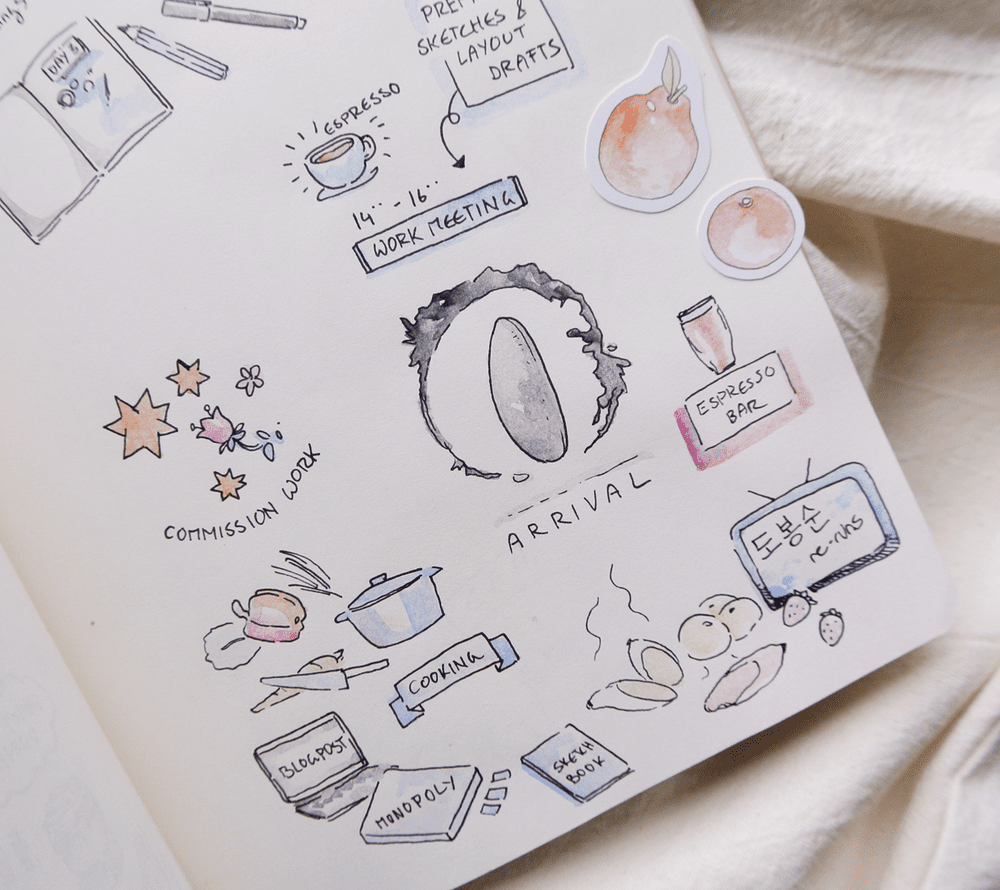 DAY 6
SKETCHES &
LAYOUT
DRAFTS
ESPRESSO
14°° - 16°°
WORK MEETING
ESPRESSO
BAR
COMMISSION WORK
ARRIVAL
도봉순
re-runs
COOKING
BLOGPOST
MONOPOLY
SKETCH
BOOK